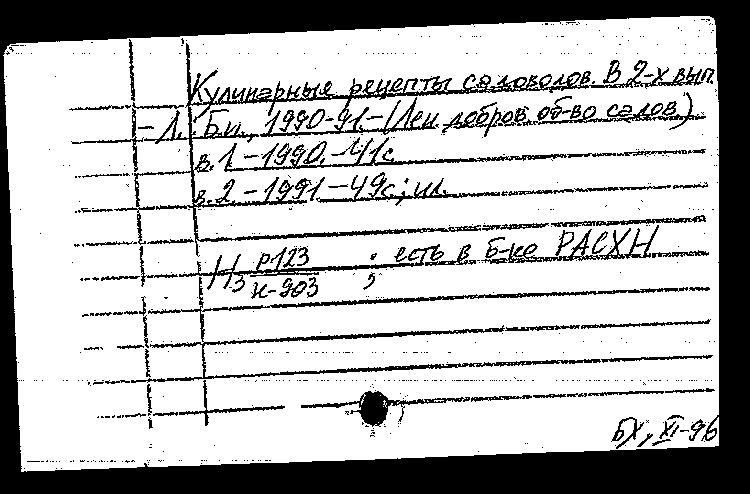 Кулинарные рецепты садоводов. В 2-х вып.
- Л.: Б.и., 1990-91.- (Лен. добров. об-во садов.)
в.1.-1990.-41с.
в.2-1991.-49с; ил.
Н3 Р123 ; есть в б-ке РАСХН
К-903
БХ, XI-96